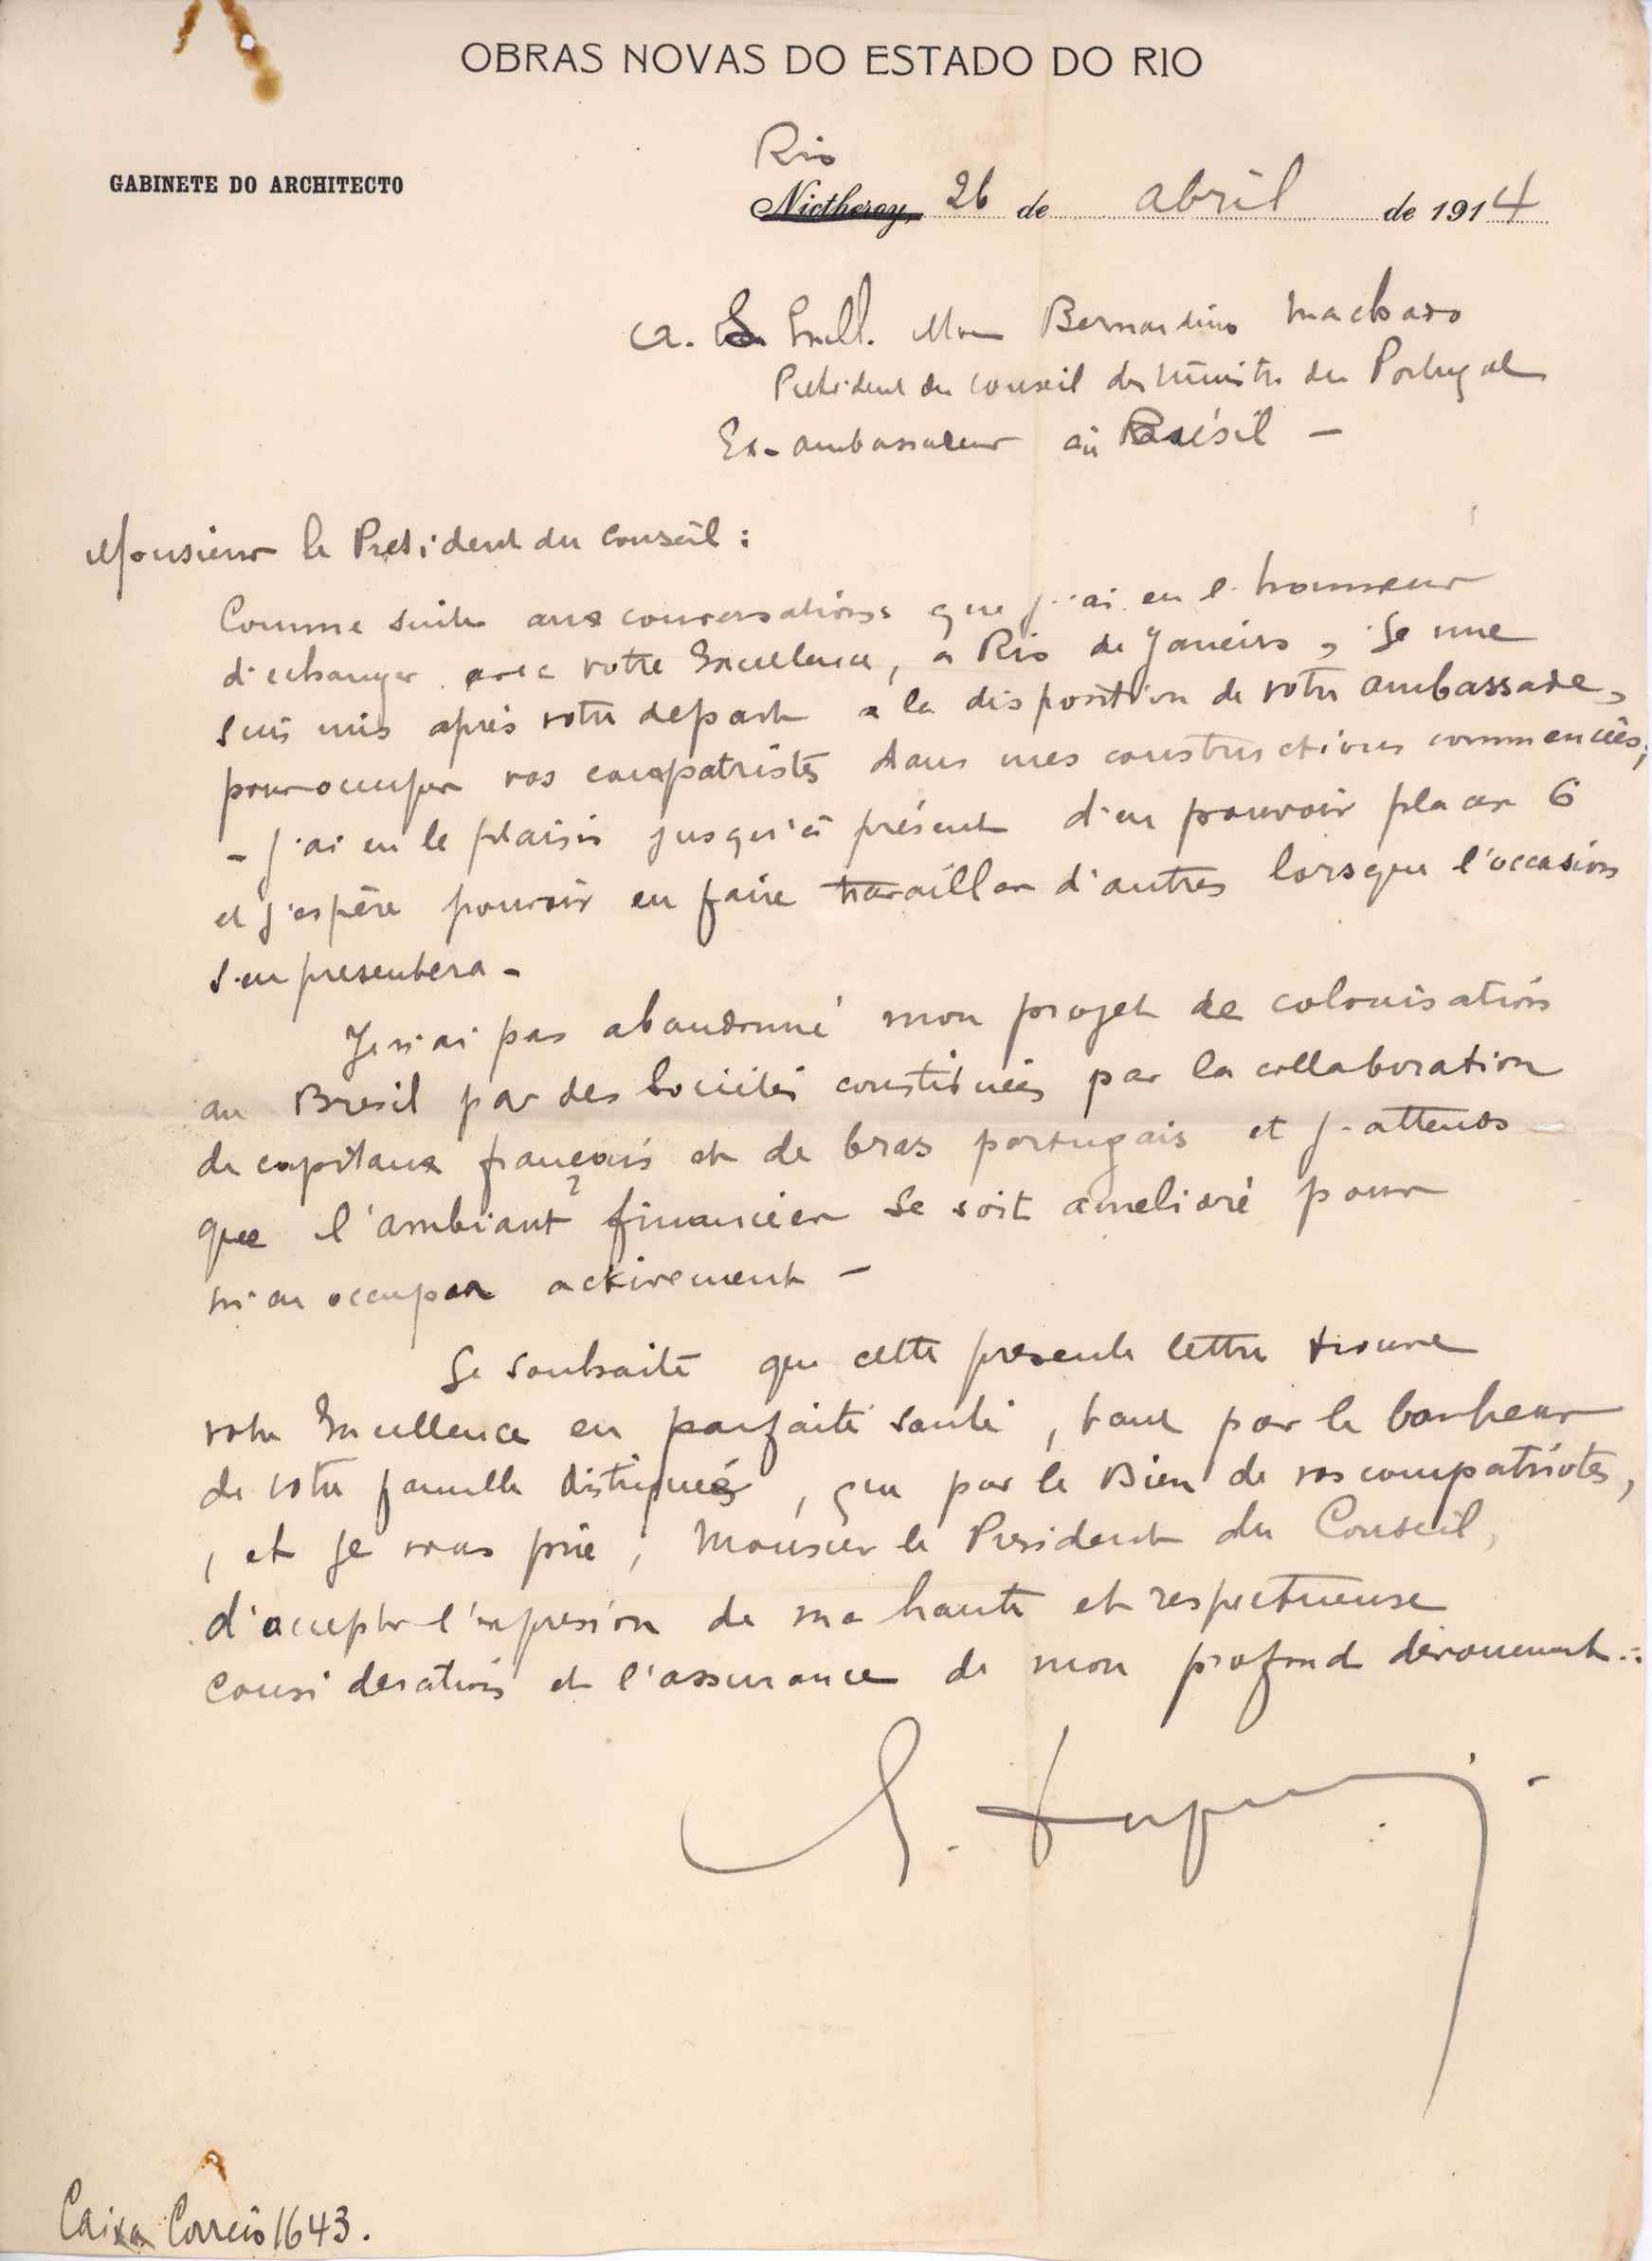 OBRAS NOVAS DO ESTADO DO RIO
GABINETE DO ARCHITECTO
Rio
Nictheroy, 26 de abril de 1914
a. S. Exell. Mon Bernardino Machado
President du Conseil des Ministr du Portugal
Ex-ambassadeur au Brésil -
Monsieur le President du Conseil :
Comme suite aux conversations que j'ai eu l'honneur
d'echanger avec votre Excellence, a Rio de Janeiro, Je me
suis mis après votre depart a la disposition de votre ambassade,
pour occuper vos compatristes dans mes constructions commencées,
- j'ai eu le plaisir jusqu'à présent d'en pouvoir placer 6
et j'espère pouvoir en faire travailler d'autres lorsque l'occasion
s'en presentera -
Je n'ai pas abandonné mon projet de colonisation
au Bresil par des Sociétés constituées par la collaboration
de capitaux français et de bras portugais et j'attends
que l'ambiant financier se soit amelioré pour
m'en occuper activement -
Je souhaite que cette presente lettre trouve
votre Excellence en parfaite santé, tant par le bonheur
de votre famille distinguée, que par le Bien de vos compatriotes,
, et je vous prie, Monsieur le President du Conseil,
d'accepter l'expresion de ma haute et respectueuse
consideration et l'assurance de mon profond dévouement .:
Caixa Correio 1643.